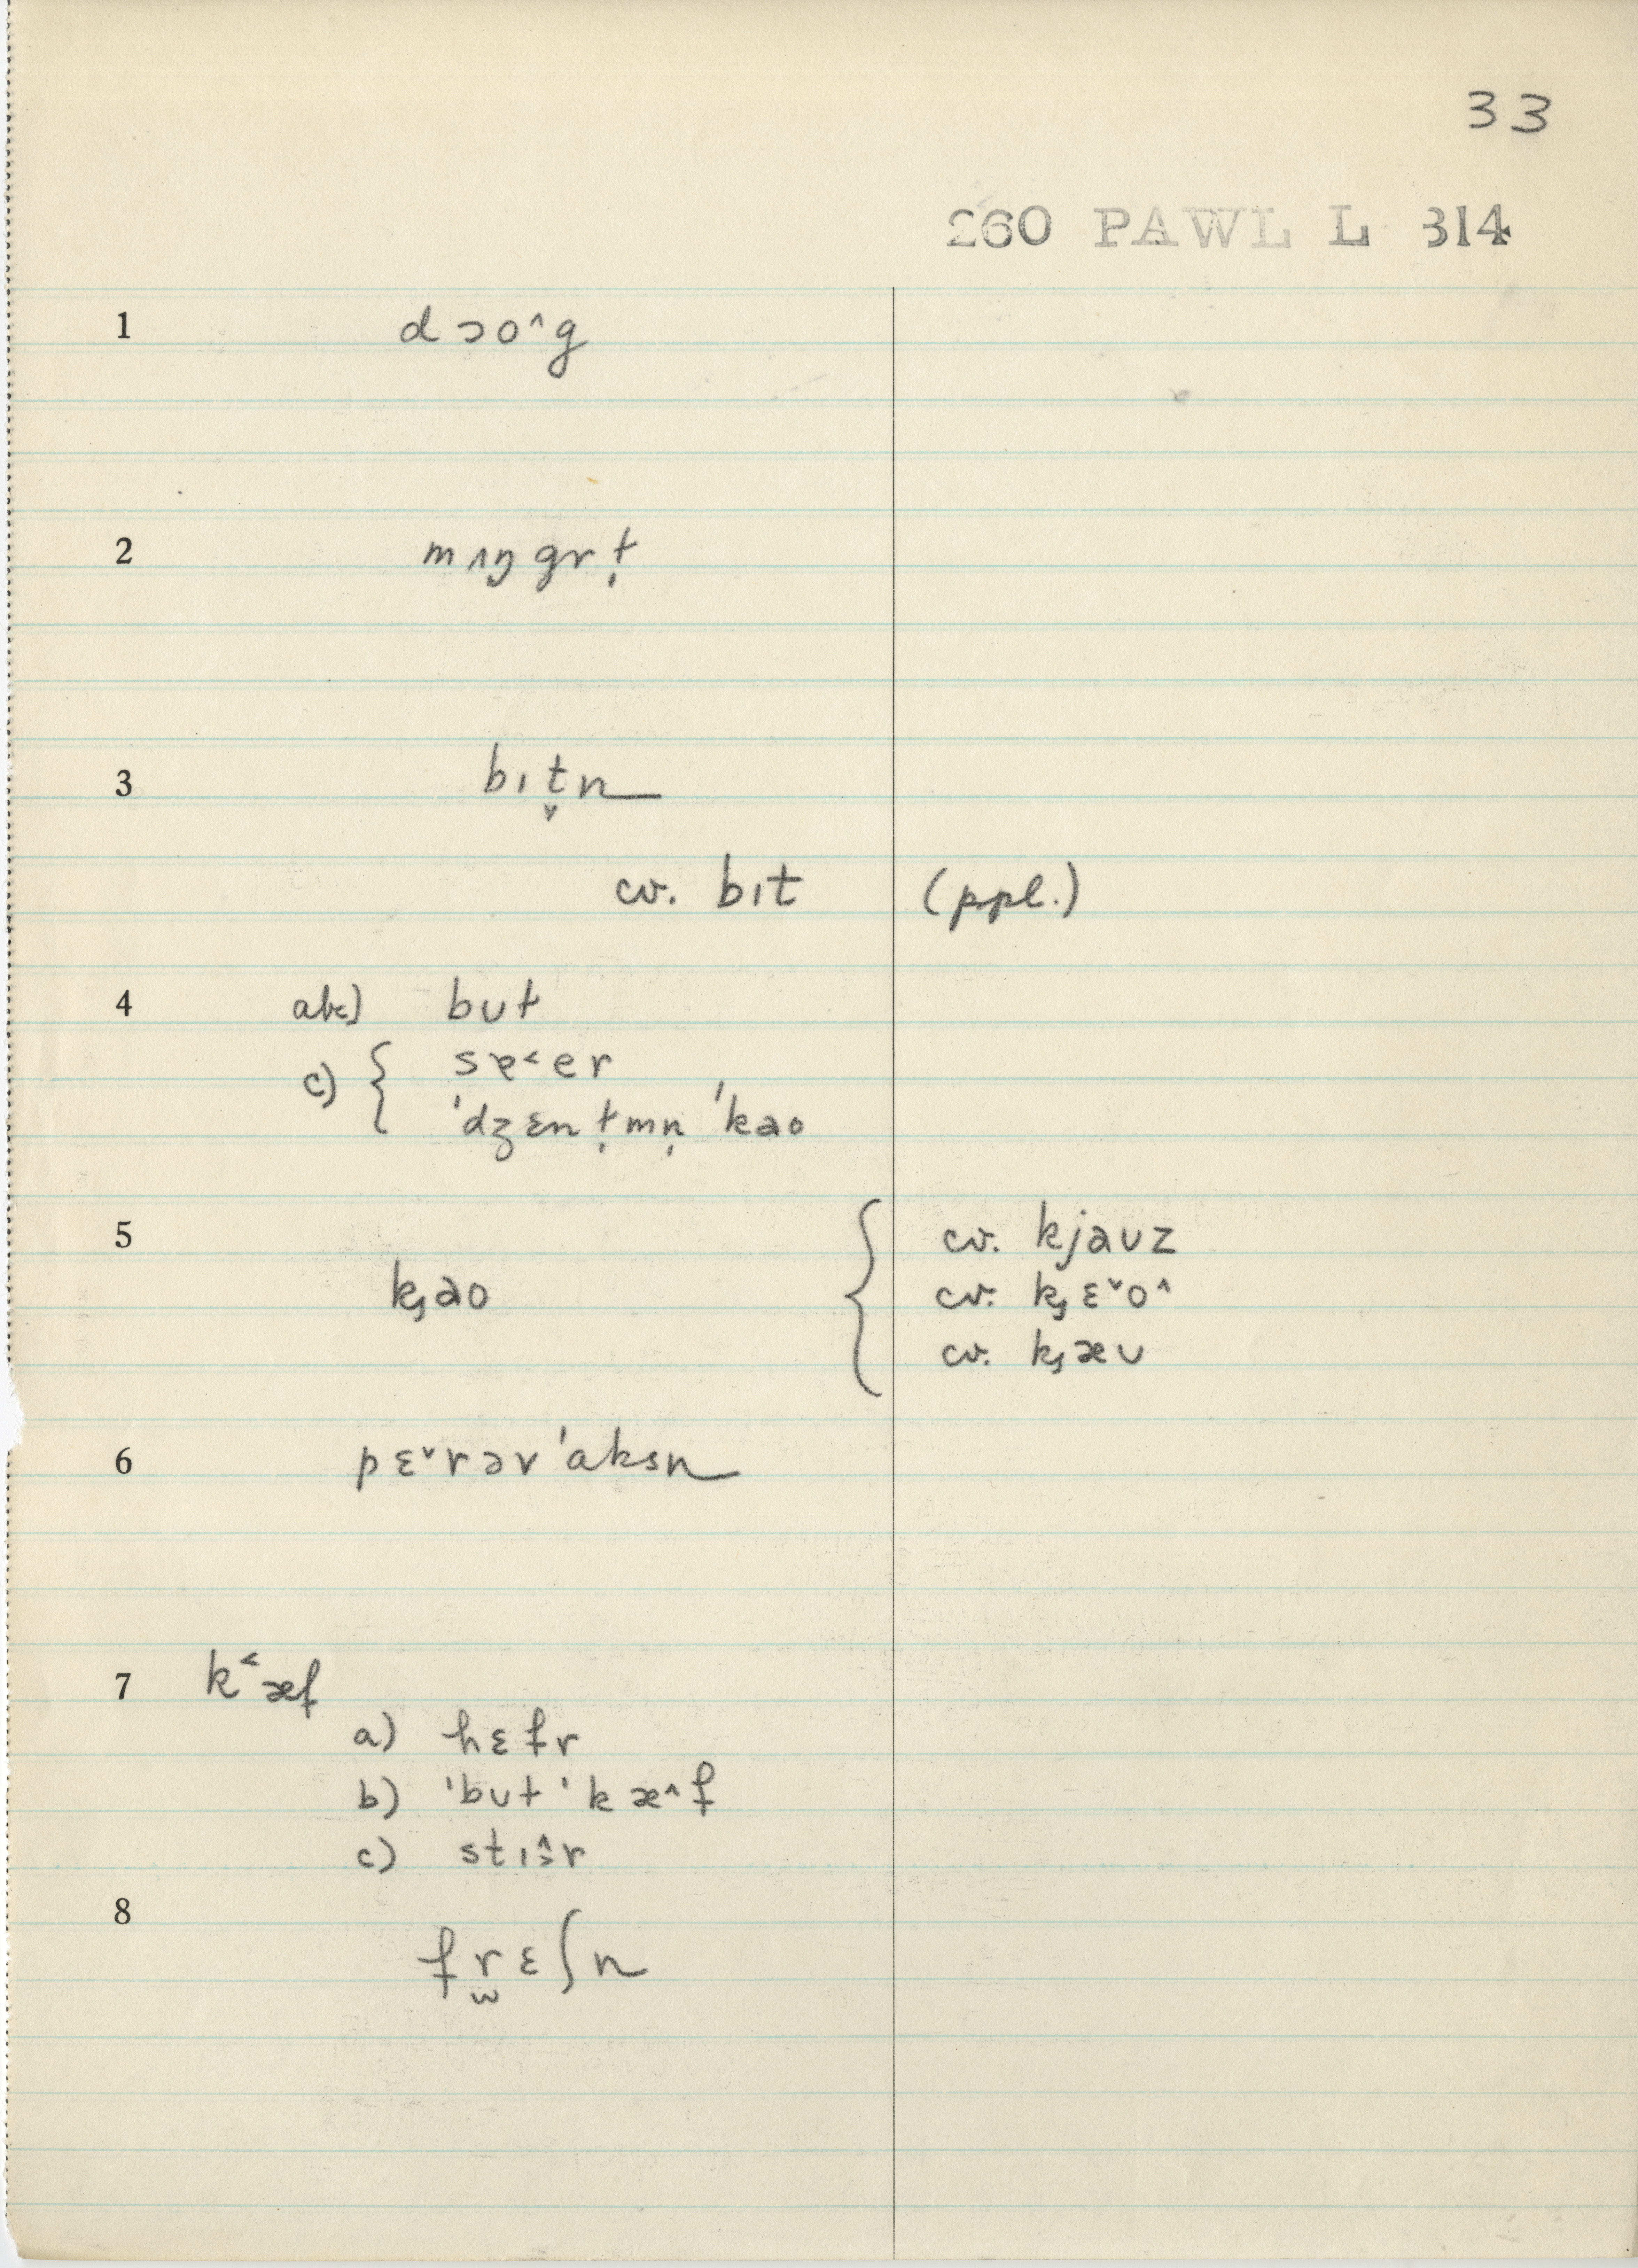 33
260 PAWL L 314
1 dɔo^g
2 mʌŋgrṭ
3 bɪt̬n
cv. bɪt (ppl.)
4 abc) bʊt
c) { sɐ˂er
'dʒɛnṭmṇ 'kao
5 k̡ao { cv. kjaʊz
cv. k̡ɛ˅o^
cv. k̡æʊ
6 pɛ˅rər'aksn
7 k˂æf
a) hɛfr
b) 'bʊt 'kæ^f
c) stɪə̭̂r
8 fr̫ɛʃn